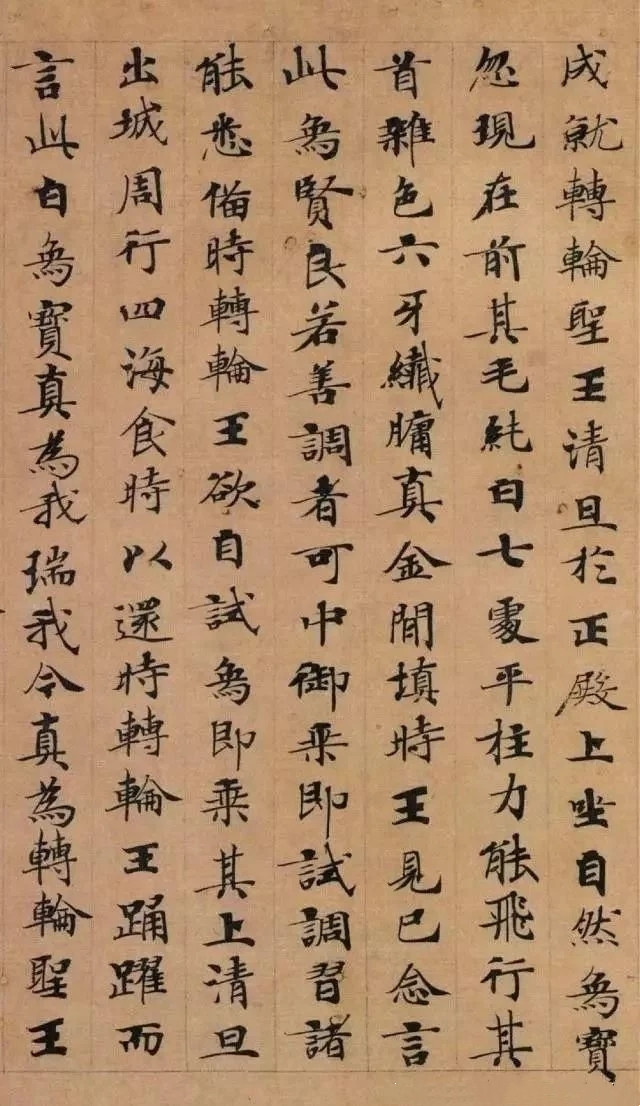 成就轉輪聖王清旦於正殿上坐自然象寶
忽現在前其毛純白七處平柱力能飛行其
首雜色六牙纖𦟛真金閒填時王見已念言
此象賢良若善調者可中御乘即試調習諸
能悉俻時轉輪王欲自試象即乘其上清旦
出城周行四海食時以還時轉輪王踊躍而
言此白象寶真為我瑞我今真為轉輪聖王